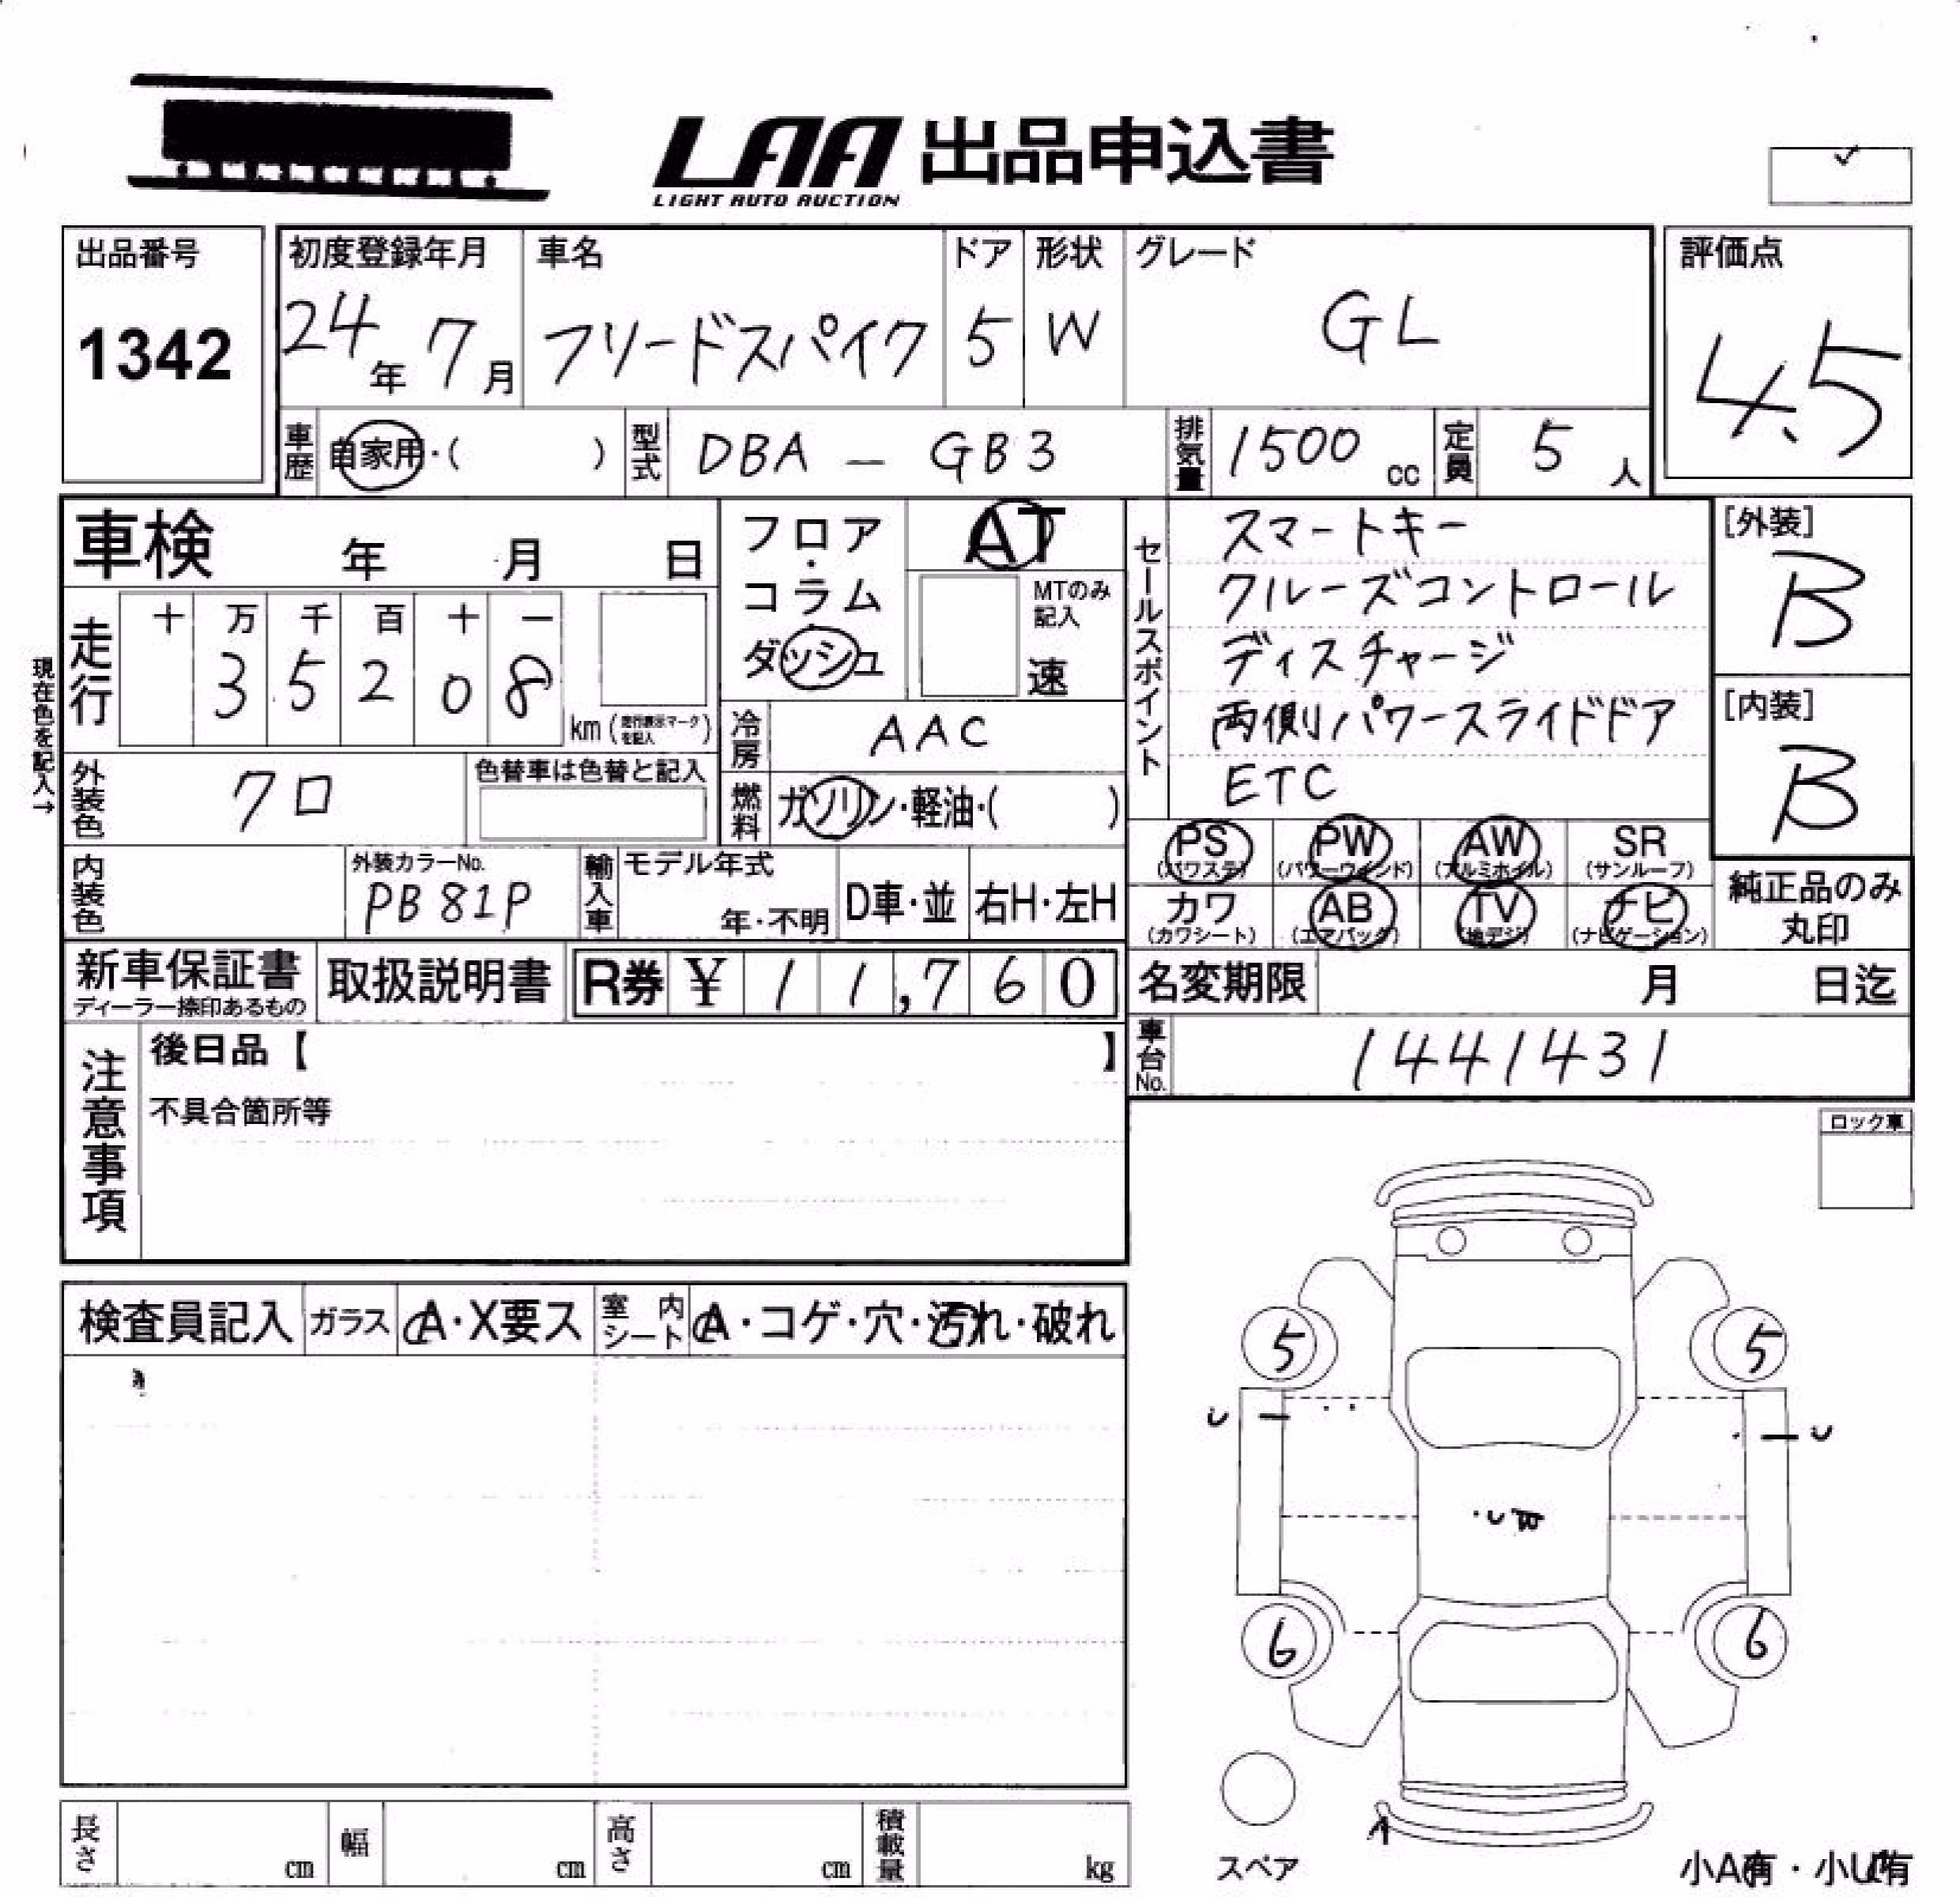 LAA 出品申込書
LIGHT AUTO AUCTION
出品番号
1342
初度登録年月
24年 7月
車名
フリードスパイク
ドア
5
形状
W
グレード
GL
評価点
4.5
車歴
自家用・( )
型式
DBA - GB3
排気量
1500 cc
定員
5 人
車検 年 月 日
フロア・コラム
ダッシュ
AT
MTのみ
記入
速
セールスポイント
スマートキー
クルーズコントロール
ディスチャージ
両側パワースライドドア
ETC
[外装]
B
[内装]
B
現在色を記入→
走行
十 万 千 百 十 一
3 5 2 0 8
km (走行表示マークを記入)
冷房
AAC
外装色
クロ
色替車は色替と記入
燃料
ガソリン・軽油・( )
PS
(パワステ)
PW
(パワーウィンド)
AW
(アルミホイル)
SR
(サンルーフ)
カワ
(カワシート)
AB
(エアバック)
TV
(地デジ)
ナビ
(ナビゲーション)
純正品のみ
丸印
内装色
外装カラーNo.
PB81P
輸入車
モデル年式
年・不明
D車・並
右H・左H
新車保証書
ディーラー捺印あるもの
取扱説明書
R券 ¥ 11,760
名変期限 月 日迄
車台No.
1441431
注意事項
後日品【 】
不具合箇所等
ロック車
検査員記入
ガラス
A・X要ス
室内シート
A・コゲ・穴・汚れ・破れ
5
5
6
6
スペア
小A有・小U有
長さ cm
幅 cm
高さ cm
積載量 kg